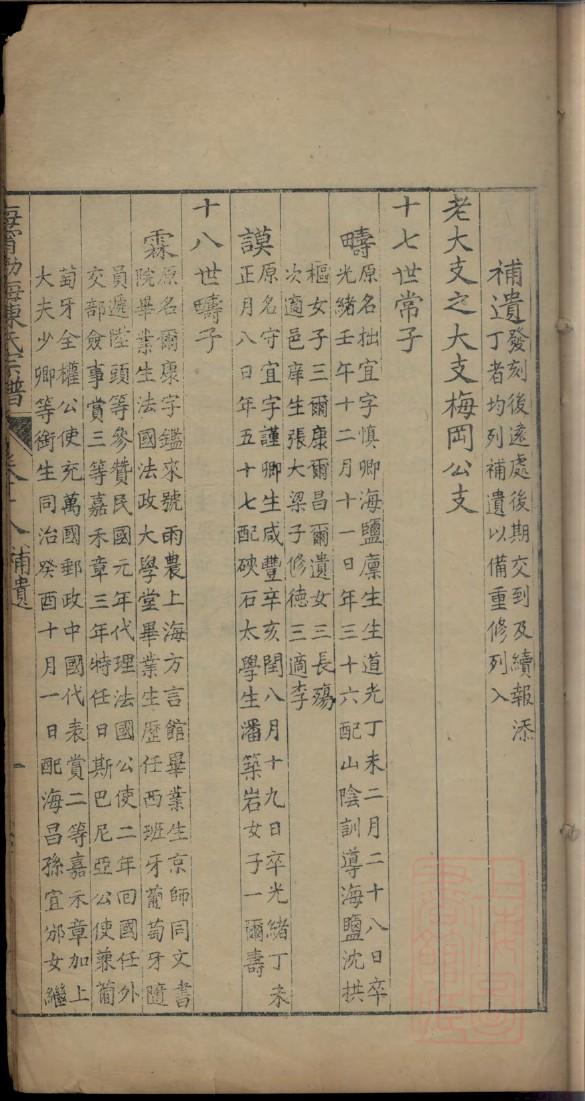 補遺
發刻後遠處後期交到及續報添
丁者均列補遺以備重修列入
老大支之大支梅岡公支
十七世常子
疇
原名拙宜字慎卿海鹽廩生生道光丁未二月二十八日卒
光緒壬午十二月十一日年三十六配山陰訓導海鹽沈拱
樞女子三爾康爾昌爾遺女三長殤
次適邑庠生張大梁子修德三適李
謨
原名守宜字謹卿生咸豐辛亥閏八月十九日卒光緒丁未
正月八日年五十七配硤石太學生潘築岩女子一爾壽
十八世疇子
霖
原名爾康字鑑來號雨農上海方言館畢業生京師同文書
院畢業生法國法政大學堂畢業生歷任西班牙葡萄牙隨
員遞陞頭等參贊民國元年代理法國公使二年回國任外
交部僉事賞三等嘉禾章三年特任日斯巴尼亞公使兼葡
萄牙全權公使充萬國郵政中國代表賞二等嘉禾章加上
大夫少卿等銜生同治癸酉十月一日配海昌孫宜邠女繼
海陳氏宗譜
卷十八補遺
一